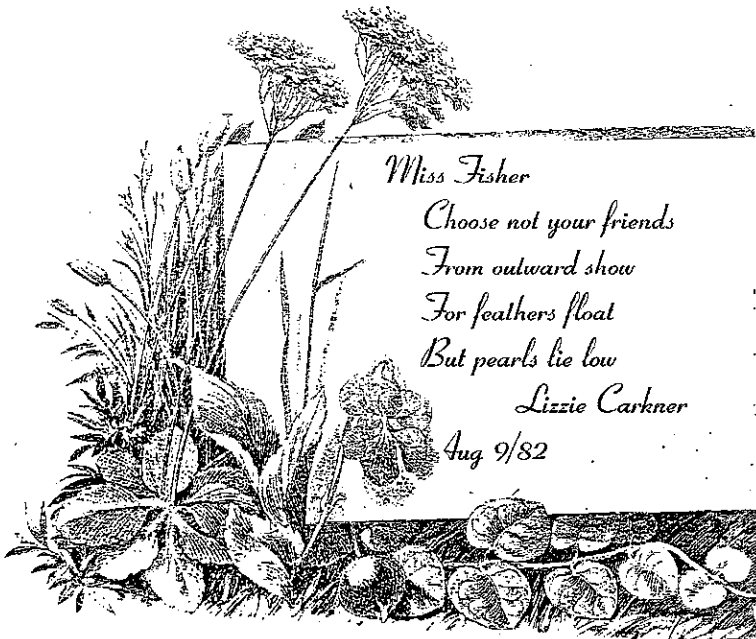 Miss Fisher
Choose not your friends
From outward show
For feathers float
But pearls lie low
Lizzie Carkner
Aug 9/82